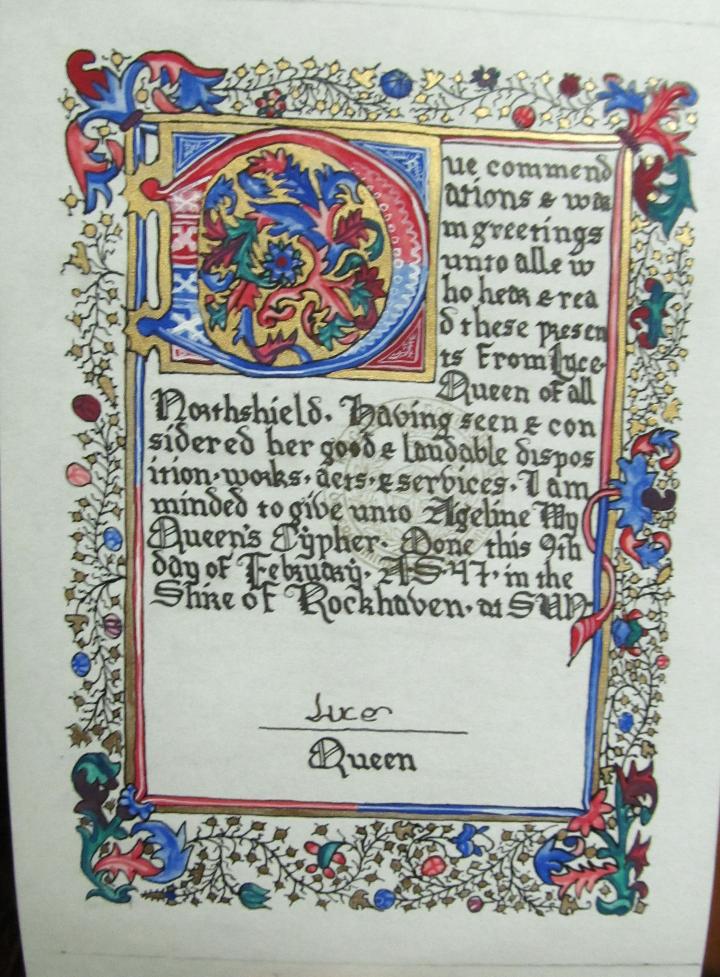 Due commend
ations & wa
m greetings
unto alle w
ho hear & rea
d these presen
ts From Lyce
Queen of all
Northshield. Having seen & con
sidered her good & laudable dispos
ition, works, acts, & services. I am
minded to give unto Ageline My
Queen's Cypher. Done this 9th
day of February. A.S. 47. in the
Shire of Rockhaven. at SUN
Luce
Queen